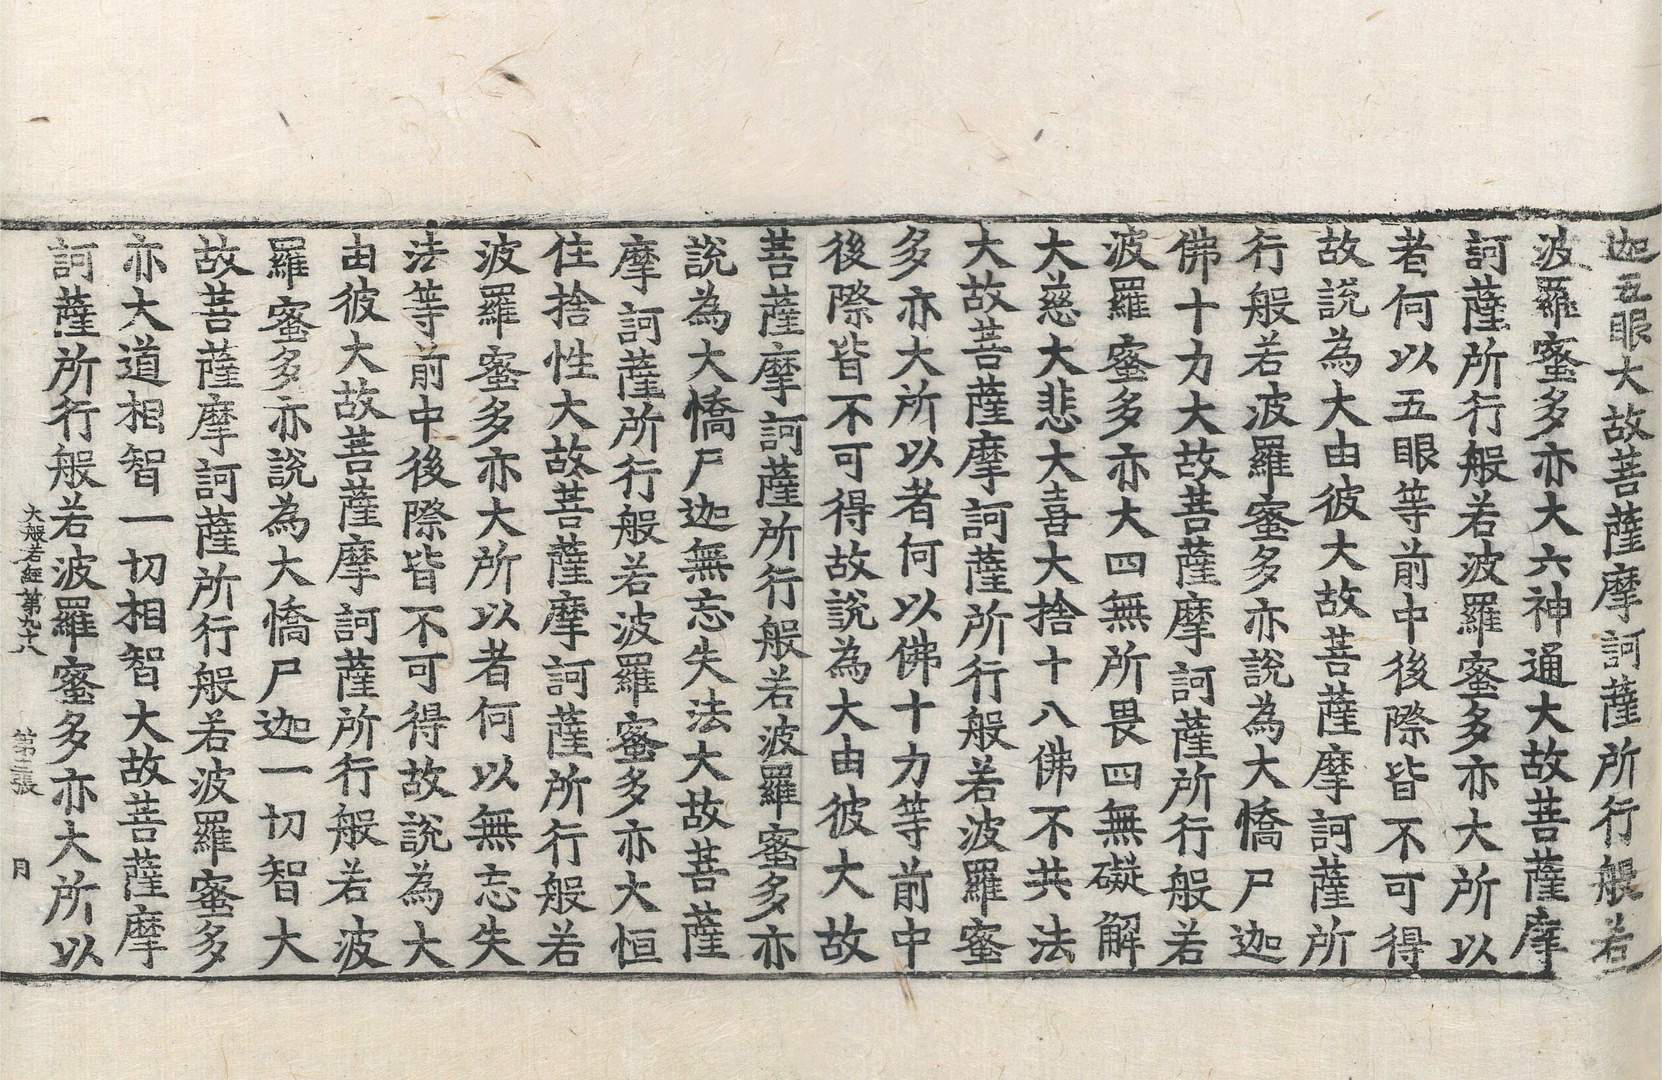 迦五眼大故菩薩摩訶薩所行般若
波羅蜜多亦大六神通大故菩薩摩
訶薩所行般若波羅蜜多亦大所以
者何以五眼等前中後際皆不可得
故說為大由彼大故菩薩摩訶薩所
行般若波羅蜜多亦說為大憍尸迦
佛十力大故菩薩摩訶薩所行般若
波羅蜜多亦大四無所畏四無礙解
大慈大悲大喜大捨十八佛不共法
大故菩薩摩訶薩所行般若波羅蜜
多亦大所以者何以佛十力等前中
後際皆不可得故說為大由彼大故
菩薩摩訶薩所行般若波羅蜜多亦
說為大憍尸迦無忘失法大故菩薩
摩訶薩所行般若波羅蜜多亦大恒
住捨性大故菩薩摩訶薩所行般若
波羅蜜多亦大所以者何以無忘失
法等前中後際皆不可得故說為大
由彼大故菩薩摩訶薩所行般若波
羅蜜多亦說為大憍尸迦一切智大
故菩薩摩訶薩所行般若波羅蜜多
亦大道相智一切相智大故菩薩摩
訶薩所行般若波羅蜜多亦大所以
大般若經第九十八 第三張 月